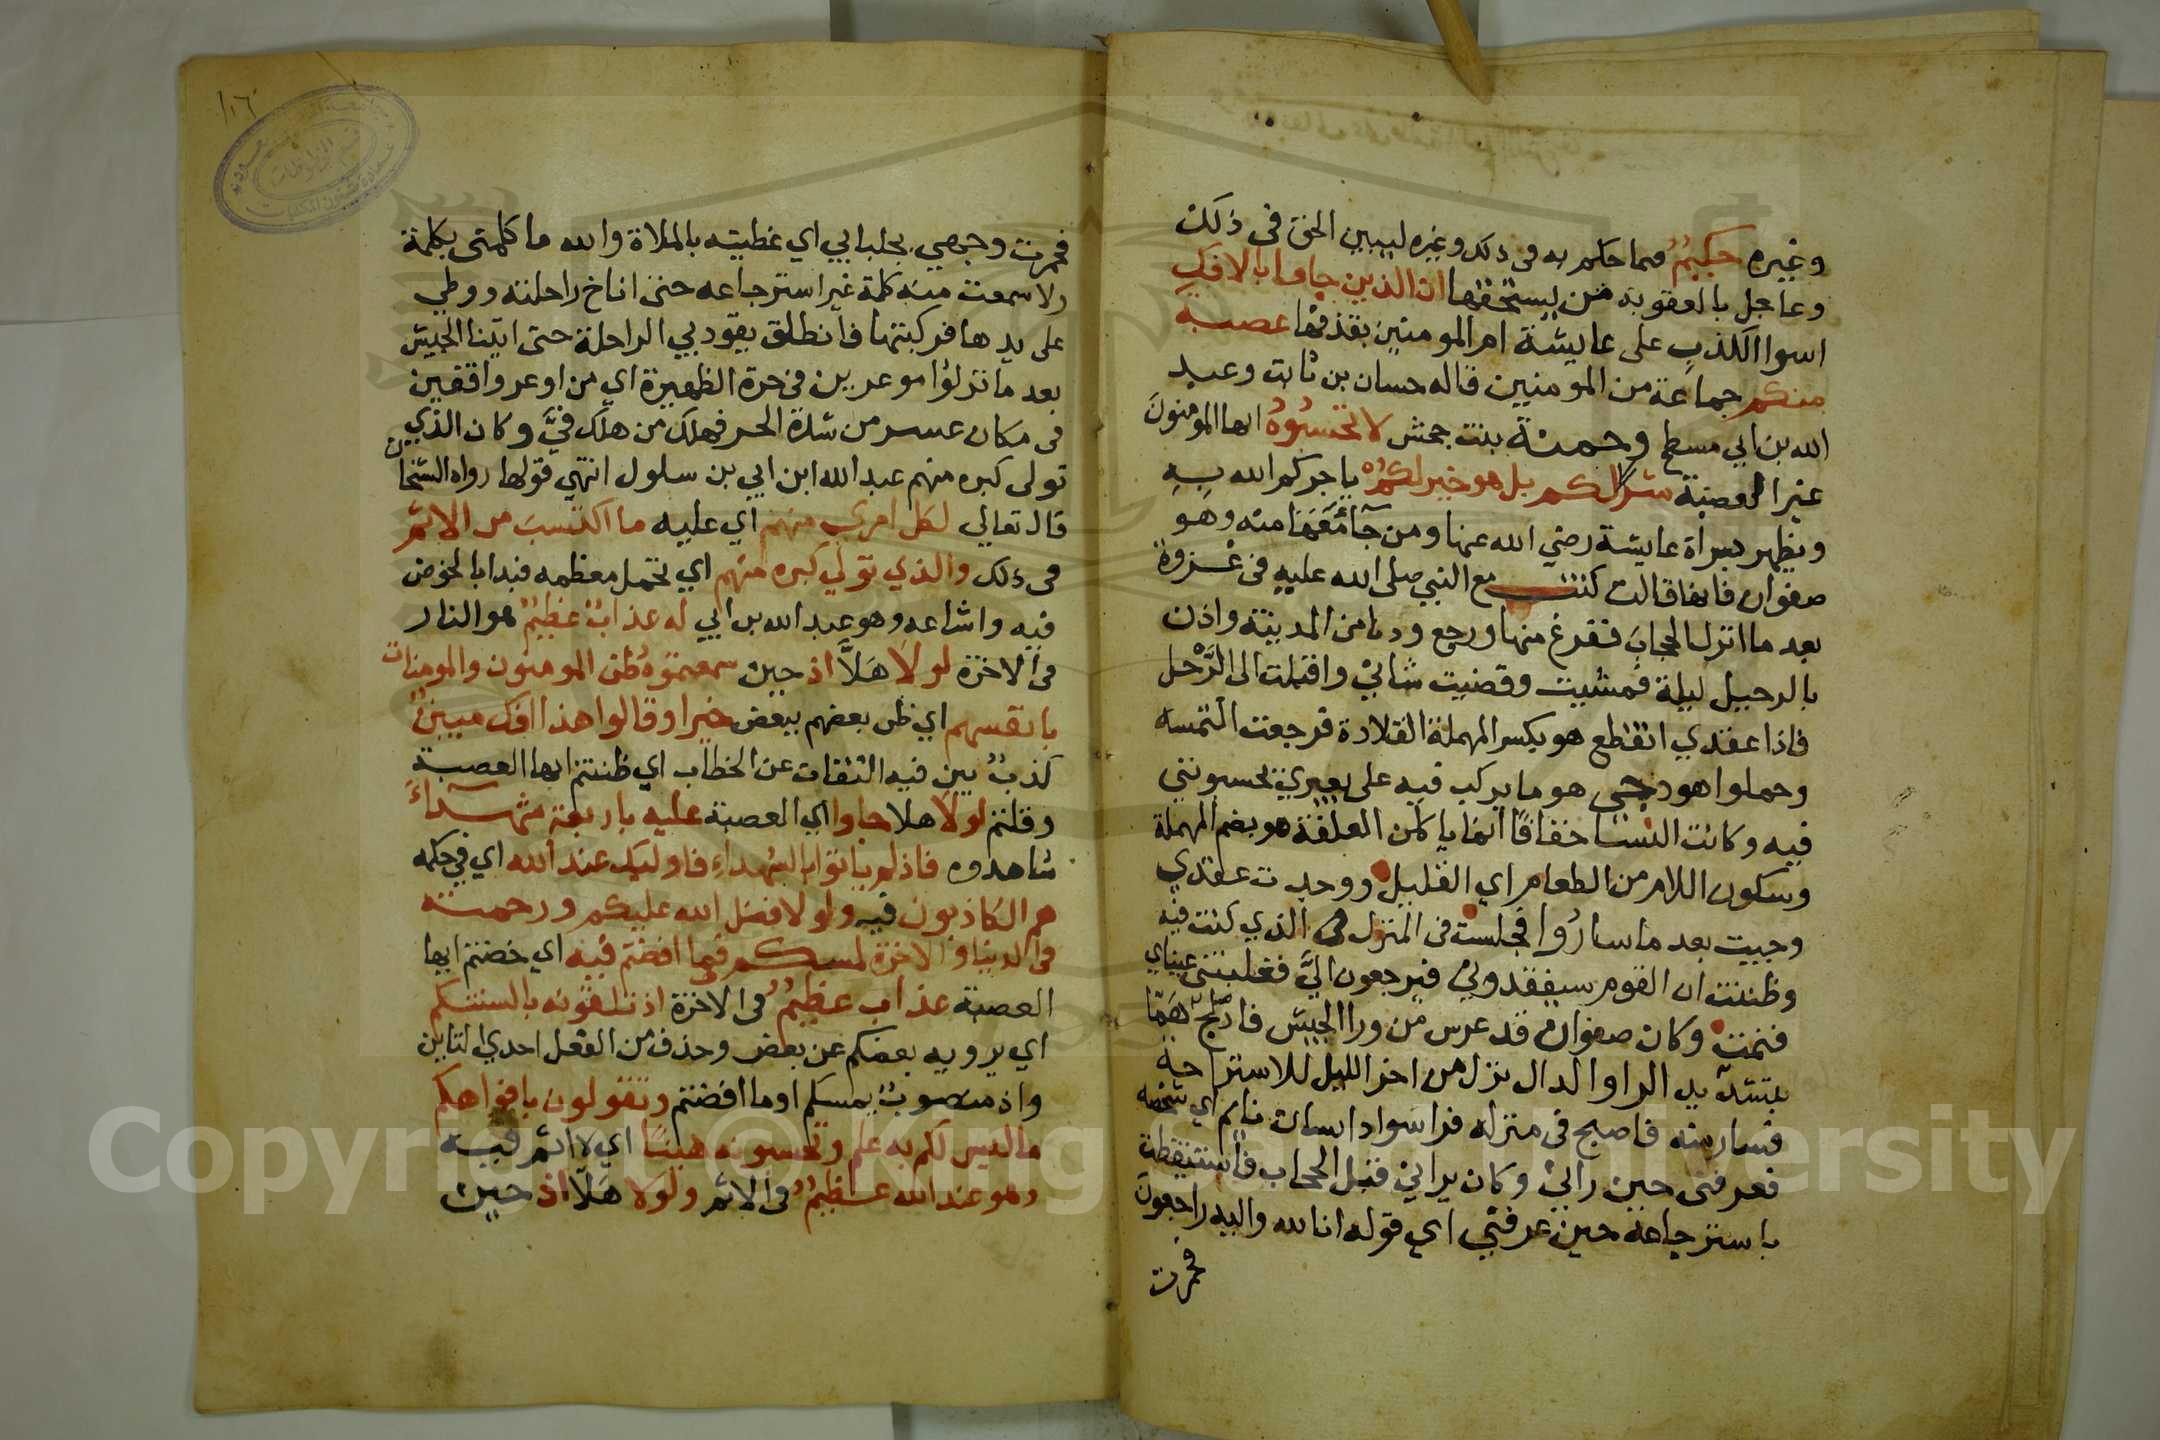 وغيره حكيم فيما حكم به في ذلك وغيره ليبين الحق في ذلك
وعاجل بالعقوبة من يستحقها ان الذين جاوا بالافك
اسوا الكذب على عايشة ام المومنين بقذفها عصبة
منكم جماعة من المومنين قاله حسان بن ثابت وعبد
الله بن ابي مسطح وحمنة بنت جحش لا تحسبوه ايها المومنون
غير العصبة شرا لكم بل هو خير لكم ياجركم الله به
ويظهر براة عايشة رضي الله عنها ومن جآ معها منه وهو
صفوان فانها قالت كنت مع النبي صلى الله عليه في غزوة
بعد ما انزل الحجاب ففرغ منها ورجع ودنا من المدينة واذن
بالرحيل ليلة فمشيت وقضيت شاني واقبلت الى الرَّحل
فاذا عقدي انقطع هو بكسر المهملة القلادة فرجعت التمسه
وحملوا هودجي هو ما يركب فيه على بعيري يحسبونني
فيه وكانت النسا خفافا انما ياكلن العلقة هو بضم المهملة
وسكون اللام من الطعام اي القليل ووجدت عقدي
وجيت بعد ما ساروا فجلست في المنزل الذي كنت فيه
وظننت ان القوم سيفقدوني فيرجعون اليَّ فغلبتني عيناي
فنمت وكان صفوان قد عرس من ورا الجيش فادلج هما
بتشديد الرا والدال نزل من اخر الليل للاستراحة
فسار منه فاصبح في منزله فراى سواد انسان نايم اي شخصه
فعرفني حين راني وكان يراني قبل الحجاب فاستيقظت
باسترجاعه حين عرفني اي قوله انا لله واليه راجعون
فخمرت
١١٦
فخمرت وجهي بجلبابي اي غطيته بالملاة والله ما كلمني بكلمة
ولا سمعت منه كلمة غير استرجاعه حتى اناخ راحلته ووطي
على يدها فركبتها فانطلق يقود بي الراحلة حتى اتينا الجيش
بعد ما نزلوا موعرين في حرة الظهيرة اي من اوعر واقفين
في مكان عسر من شدة الحر فهلك من هلك فيَّ وكان الذي
تولى كبره منهم عبد الله ابن ابي بن سلول انتهى قولها رواه الشيخان
قال تعالي لكل امري منهم اي عليه ما اكتسب من الاثم
في ذلك والذي تولي كبره منهم اي تحمل معظمه فبدا بالخوض
فيه واشاعه وهو عبد الله بن ابي له عذاب عظيم هو النار
في الاخرة لولا هلَّا اذ حين سمعتموه ظن المومنون والمومنات
بانفسهم اي ظن بعضهم ببعض خيرا وقالوا هذا افك مبين
كذب بين فيه التفات عن الخطاب اي ظننتم ايها العصبة
وقلتم لولا هلا جاوا اي العصبة عليه باربعة شهداء
شاهدوه فاذ لم ياتوا بالشهداء فاوليك عند الله اي في حكمه
هم الكاذبون فيه ولولا فضل الله عليكم ورحمته
في الدنيا والاخرة لمسكم فيما افضتم فيه اي خضتم ايها
العصبة عذاب عظيم في الاخرة اذ تلقونه بالسنتكم
اي يرويه بعضكم عن بعض وحذف من الفعل احدي التاين
واذ منصوب بمسكم او ما افضتم وتقولون بافواهكم
ما ليس لكم به علم وتحسبونه هينا اي لا اثم فيه
وهو عند الله عظيم في الاثم ولولا هلَّا اذ حين
Copyright © King Saud University